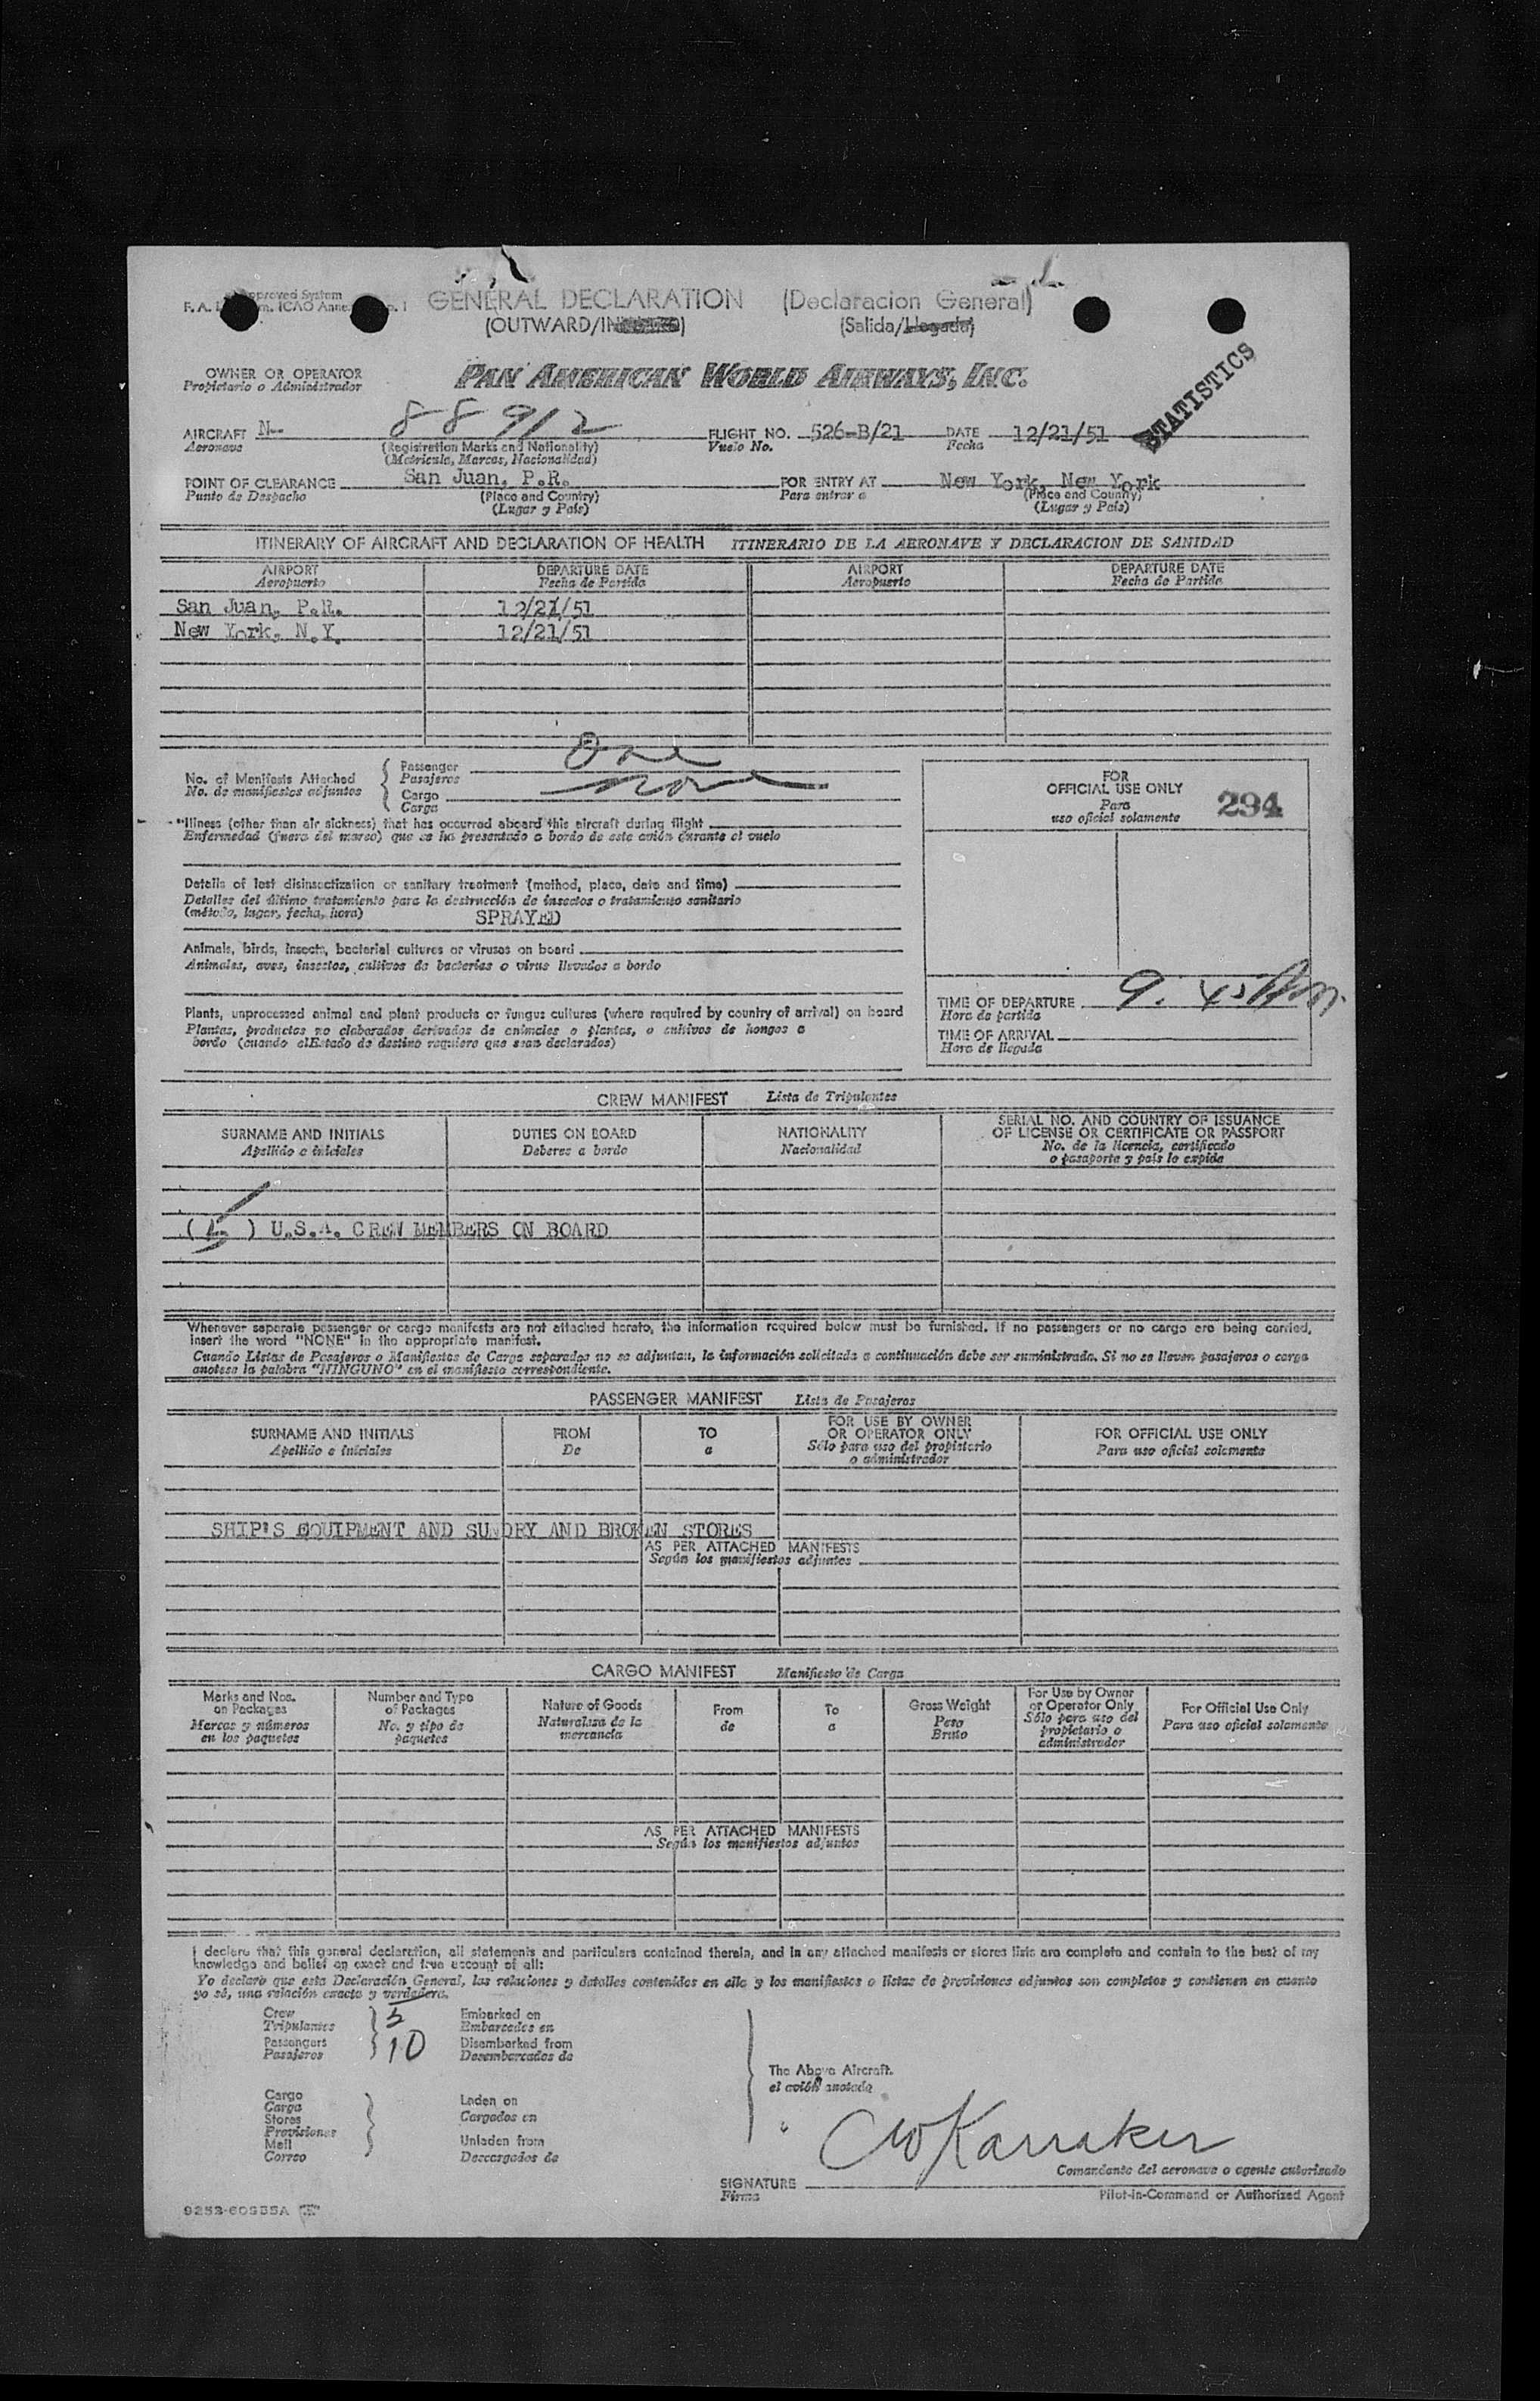 GENERAL DECLARATION (Declaracion General)
(OUTWARD/IN (Salida/Llegada)
OWNER OR OPERATOR
Propietario o Administrador
PAN AMERICAN WORLD AIRWAYS, INC.
AIRCRAFT N- 88912 FLIGHT NO. 526-B/21 DATE 12/21/51
Aeronave (Registration Marks and Nationality) Vuelo No. Fecha
(Matricula, Marcas, Nacionalidad)
STATISTICS
POINT OF CLEARANCE San Juan, P.R. FOR ENTRY AT New York, New York
Punto de Despacho (Place and Country) Para entrar a (Place and Country)
(Lugar y Pais) (Lugar y Pais)
ITINERARY OF AIRCRAFT AND DECLARATION OF HEALTH ITINERARIO DE LA AERONAVE Y DECLARACION DE SANIDAD
AIRPORT DEPARTURE DATE AIRPORT DEPARTURE DATE
Aeropuerto Fecha de Partida Aeropuerto Fecha de Partida
San Juan, P.R. 12/21/51
New York, N.Y. 12/21/51
No. of Manifests Attached
No. de manifiestos adjuntos
Passenger One
Pasajeros
Cargo
Carga
FOR
OFFICIAL USE ONLY
Para
uso oficial solamente
294
"Illness (other than air sickness) that has occurred aboard this aircraft during flight
Enfermedad (fuera del mareo) que se ha presentado a bordo de este avión durante el vuelo
Details of last disinsectization or sanitary treatment (method, place, date and time)
Detalles del último tratamiento para la destrucción de insectos o tratamiento sanitario
(método, lugar, fecha, hora) SPRAYED
Animals, birds, insects, bacterial cultures or viruses on board
Animales, aves, insectos, cultivos de bacterias o virus llevados a bordo
TIME OF DEPARTURE 9.45 A.m.
Hora de partida
TIME OF ARRIVAL
Hora de llegada
Plants, unprocessed animal and plant products or fungus cultures (where required by country of arrival) on board
Plantas, productos no elaborados derivados de animales o plantas, o cultivos de hongos a
bordo (cuando el Estado de destino requiere que sean declarados)
CREW MANIFEST Lista de Tripulantes
SURNAME AND INITIALS DUTIES ON BOARD NATIONALITY SERIAL NO. AND COUNTRY OF ISSUANCE
OF LICENSE OR CERTIFICATE OR PASSPORT
Apellido e iniciales Deberes a bordo Nacionalidad No. de la licencia, certificado
o pasaporte y país lo expide
( 5 ) U.S.A. CREW MEMBERS ON BOARD
Whenever separate passenger or cargo manifests are not attached hereto, the information required below must be furnished. If no passengers or no cargo are being carried,
insert the word "NONE" in the appropriate manifest.
Cuando Listas de Pasajeros o Manifiestos de Carga separados no se adjuntan, la información solicitada a continuación debe ser suministrada. Si no se llevan pasajeros o carga
anotese la palabra "NINGUNO" en el manifiesto correspondiente.
PASSENGER MANIFEST Lista de Pasajeros
SURNAME AND INITIALS FROM TO FOR USE BY OWNER
OR OPERATOR ONLY FOR OFFICIAL USE ONLY
Apellido e iniciales De a Sólo para uso del propietario
o administrador Para uso oficial solamente
SHIP'S EQUIPMENT AND SUNDRY AND BROKEN STORES
AS PER ATTACHED MANIFESTS
Según los manifiestos adjuntos
CARGO MANIFEST Manifiesto de Carga
Marks and Nos.
on Packages
Marcas y números
en los paquetes
Number and Type
of Packages
No. y tipo de
paquetes
Nature of Goods
Naturaleza de la
mercancía
From
de
To
a
Gross Weight
Peso
Bruto
For Use by Owner
or Operator Only
Sólo para uso del
propietario o
administrador
For Official Use Only
Para uso oficial solamente
AS PER ATTACHED MANIFESTS
Según los manifiestos adjuntos
I declare that this general declaration, all statements and particulars contained therein, and in any attached manifests or stores lists are complete and contain to the best of my
knowledge and belief an exact and true account of all:
Yo declaro que esta Declaración General, las relaciones y detalles contenidos en ella y los manifiestos o listas de provisiones adjuntos son completos y contienen en cuanto
yo sé, una relación exacta y verdadera.
Crew 5 Embarked on
Tripulantes Embarcados en
Passengers 10 Disembarked from
Pasajeros Desembarcados de
The Above Aircraft.
el avión anotado
Cargo Laden on
Carga Cargados en
Stores
Provisiones
Mail Unladen from
Correo Descargados de
CW Karraker
Comandante del aeronave o agente autorizado
SIGNATURE
Firma
Pilot-in-Command or Authorized Agent